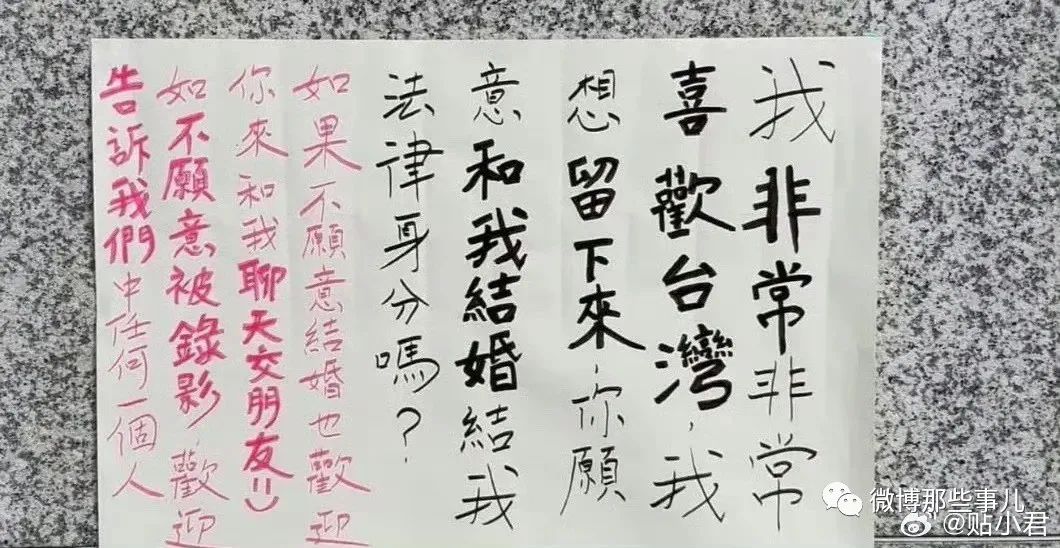 我非常非常
喜歡台灣,我
想留下來,你願
意和我結婚結我
法律身分嗎?
如果不願意結婚也歡迎
你來和我聊天交朋友=)
如不願意被錄影,歡迎
告訴我們中任何一個人
微博那些事儿
@贴小君